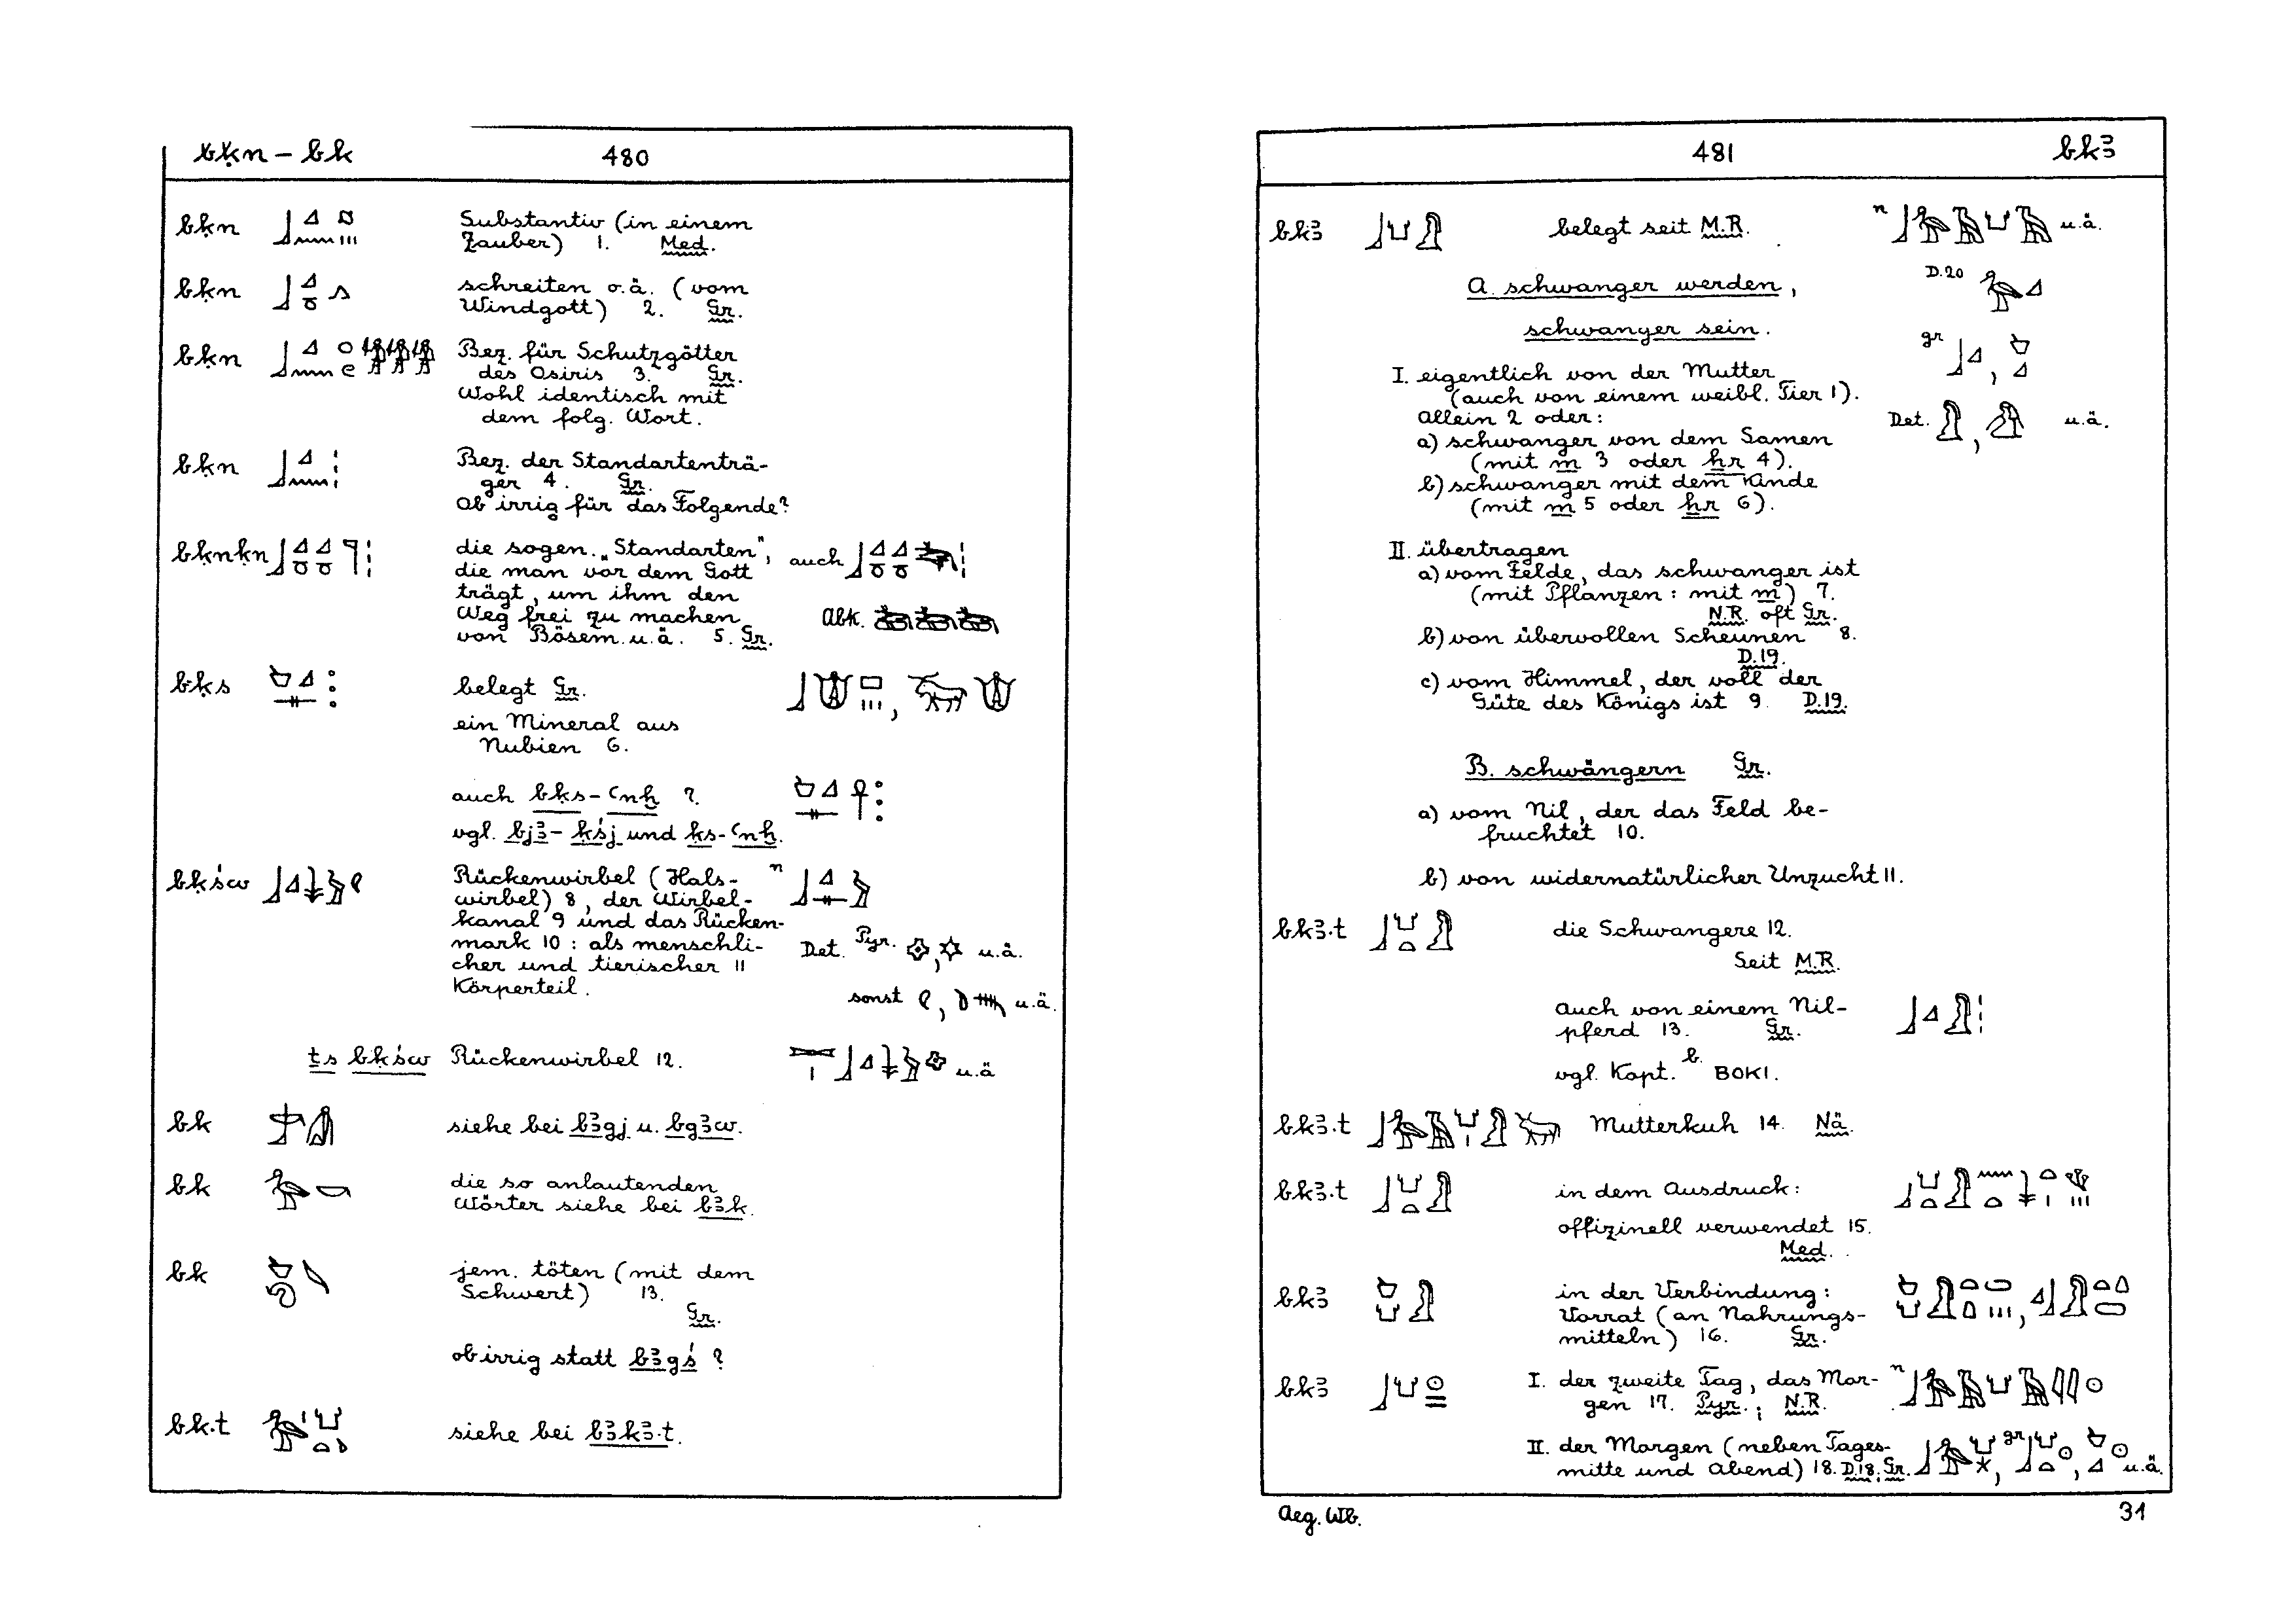 bḳn – bk 480
bḳn Substantiv (in einem
Zauber) 1. Med.
bḳn schreiten o.ä. (vom
Windgott) 2. Gr.
bḳn Bez. für Schutzgötter
des Osiris 3. Gr.
Wohl identisch mit
dem folg. Wort.
bḳn Bez. der Standartenträ-
ger 4. Gr.
Ob irrig für das Folgende?
bḳnḳn die sogen. „Standarten", auch
die man vor dem Gott
trägt, um ihm den
Weg frei zu machen Abk.
von Bösem u.ä. 5. Gr.
bḳs belegt Gr.
ein Mineral aus
Nubien 6.
auch bḳs-ꜥnḫ ?.
vgl. bjꜣ-ḳśj und ḳs-ꜥnḫ.
bḳśw Rückenwirbel (Hals- n
wirbel) 8, der Wirbel-
kanal 9 und das Rücken-
mark 10 : als menschli- Det. Pyr. , u.ä.
cher und tierischer 11
Körperteil. sonst , u.ä.
ṯs bḳśw Rückenwirbel 12. u.ä
bk siehe bei bꜣgj u. bgꜣw.
bk die so anlautenden
Wörter siehe bei bꜣk.
bk jem. töten (mit dem
Schwert) 13.
Gr.
ob irrig statt bꜣgś ?
bk.t siehe bei bꜣkꜣ.t.
481 bkꜣ
bkꜣ belegt seit M.R. n u.ä.
A. schwanger werden, D.20
schwanger sein. gr
I. eigentlich von der Mutter
(auch von einem weibl. Tier 1).
Allein 2 oder: Det. , u.ä.
a) schwanger von dem Samen
(mit m 3 oder ḥr 4).
b) schwanger mit dem Kinde
(mit m 5 oder ḥr 6).
II. übertragen
a) vom Felde, das schwanger ist
(mit Pflanzen : mit m) 7.
N.R. oft Gr.
b) von übervollen Scheunen 8.
D.19.
c) vom Himmel, der voll der
Güte des Königs ist 9. D.19.
B. schwängern Gr.
a) vom Nil, der das Feld be-
fruchtet 10.
b) von widernatürlicher Unzucht 11.
bkꜣ.t die Schwangere 12.
Seit M.R.
auch von einem Nil-
pferd 13. Gr.
vgl. Kopt. b. BOKI.
bkꜣ.t Mutterkuh 14. Nä.
bkꜣ.t in dem Ausdruck:
offizinell verwendet 15.
Med.
bkꜣ in der Verbindung:
Vorrat (an Nahrungs-
mitteln) 16. Gr.
bkꜣ I. der zweite Tag, das Mor- n
gen 17. Pyr.; N.R.
II. der Morgen (neben Tages- gr
mitte und Abend) 18. D.18; Gr. u.ä.
Aeg. Wb. 31